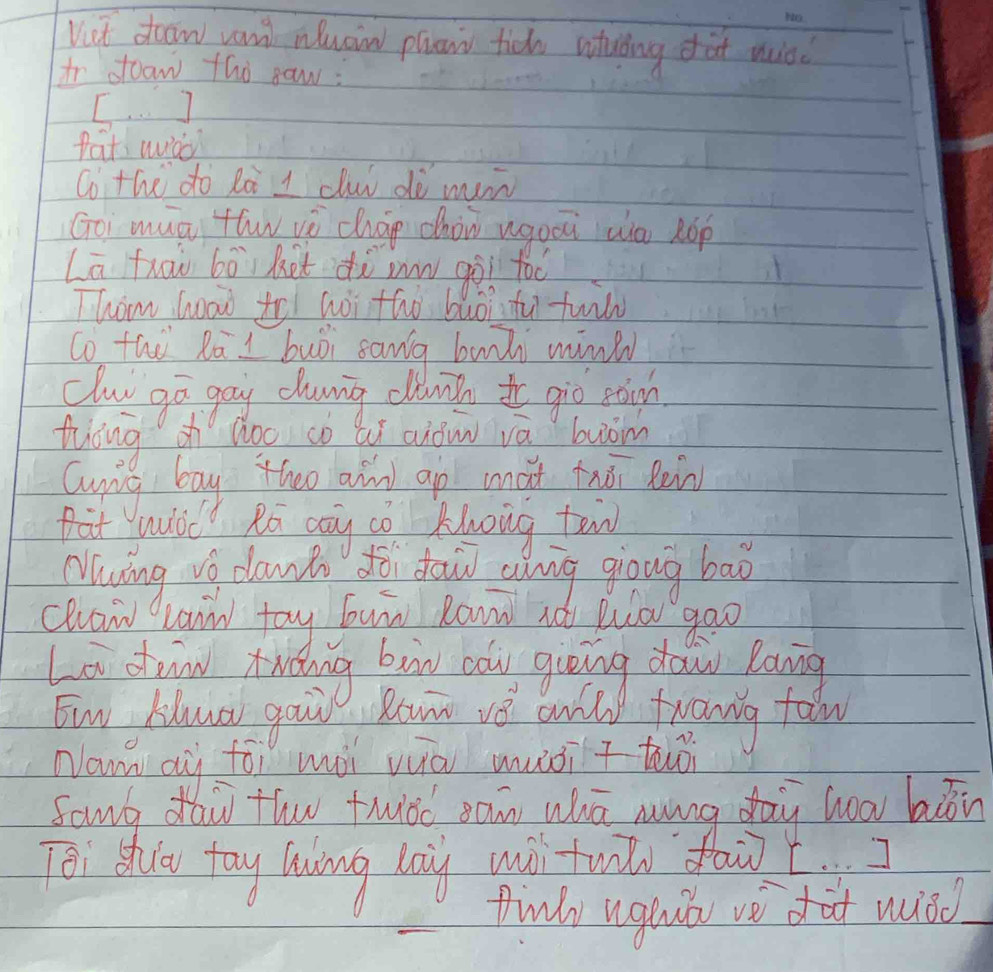 Viết đoạn văn nhận phân tích h/tượng đất nước
tr đoạn thơ sau:
[...]
Đất nước
Có thể đó là 1 chú dế mèn
Gọi mùa thu về chập chờn ngoài cửa lớp
Là trái bồ kết để em gội tóc
Thơm hoài tr hơi thở buổi tự tình
Có thể là 1 buổi sáng bình minh
Chú gà gáy chung chênh tr gió sớm
Đường đi học có cả ươm và bướm
Cùng bay theo ấm áp mặt trời lên
Đất nước là cây cỏ không tên
Những vô danh đối đầu cùng giông bão
Chân lấm tay bùn làm ra lúa gạo
Là đêm trăng bên cái giếng đầu làng
Em khua gàu làm vỡ ánh trăng tan
Năm ấy tôi mới vừa mười 7 tuổi
Sáng đầu thu trước sân nhà rụng đầy hoa bưởi
Tôi đưa tay hứng lấy mối tình đầu [...]
Định nghĩa về đất nước